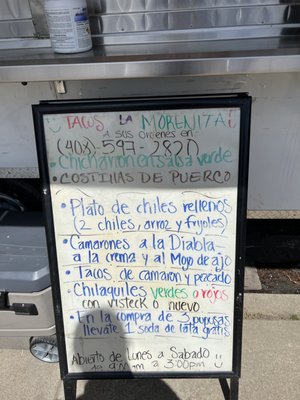 TACOS LA MORENITA
A SUS ORDENES EN
(408)-597-2820
• Chicharron en salsa verde
• COSTILLAS DE PUERCO
• Plato de chiles rellenos
(2 chiles, arroz y frijoles)
• Camarones a la Diabla
a la crema y al Mojo de ajo
• Tacos de camaron y pescado
• Chilaquiles verdes o rojos
con visteck o huevo
• En la compra de 3 pupusas
llevate 1 soda de lata gratis
Abierto de Lunes a Sabado
de 9:00am a 3:00pm